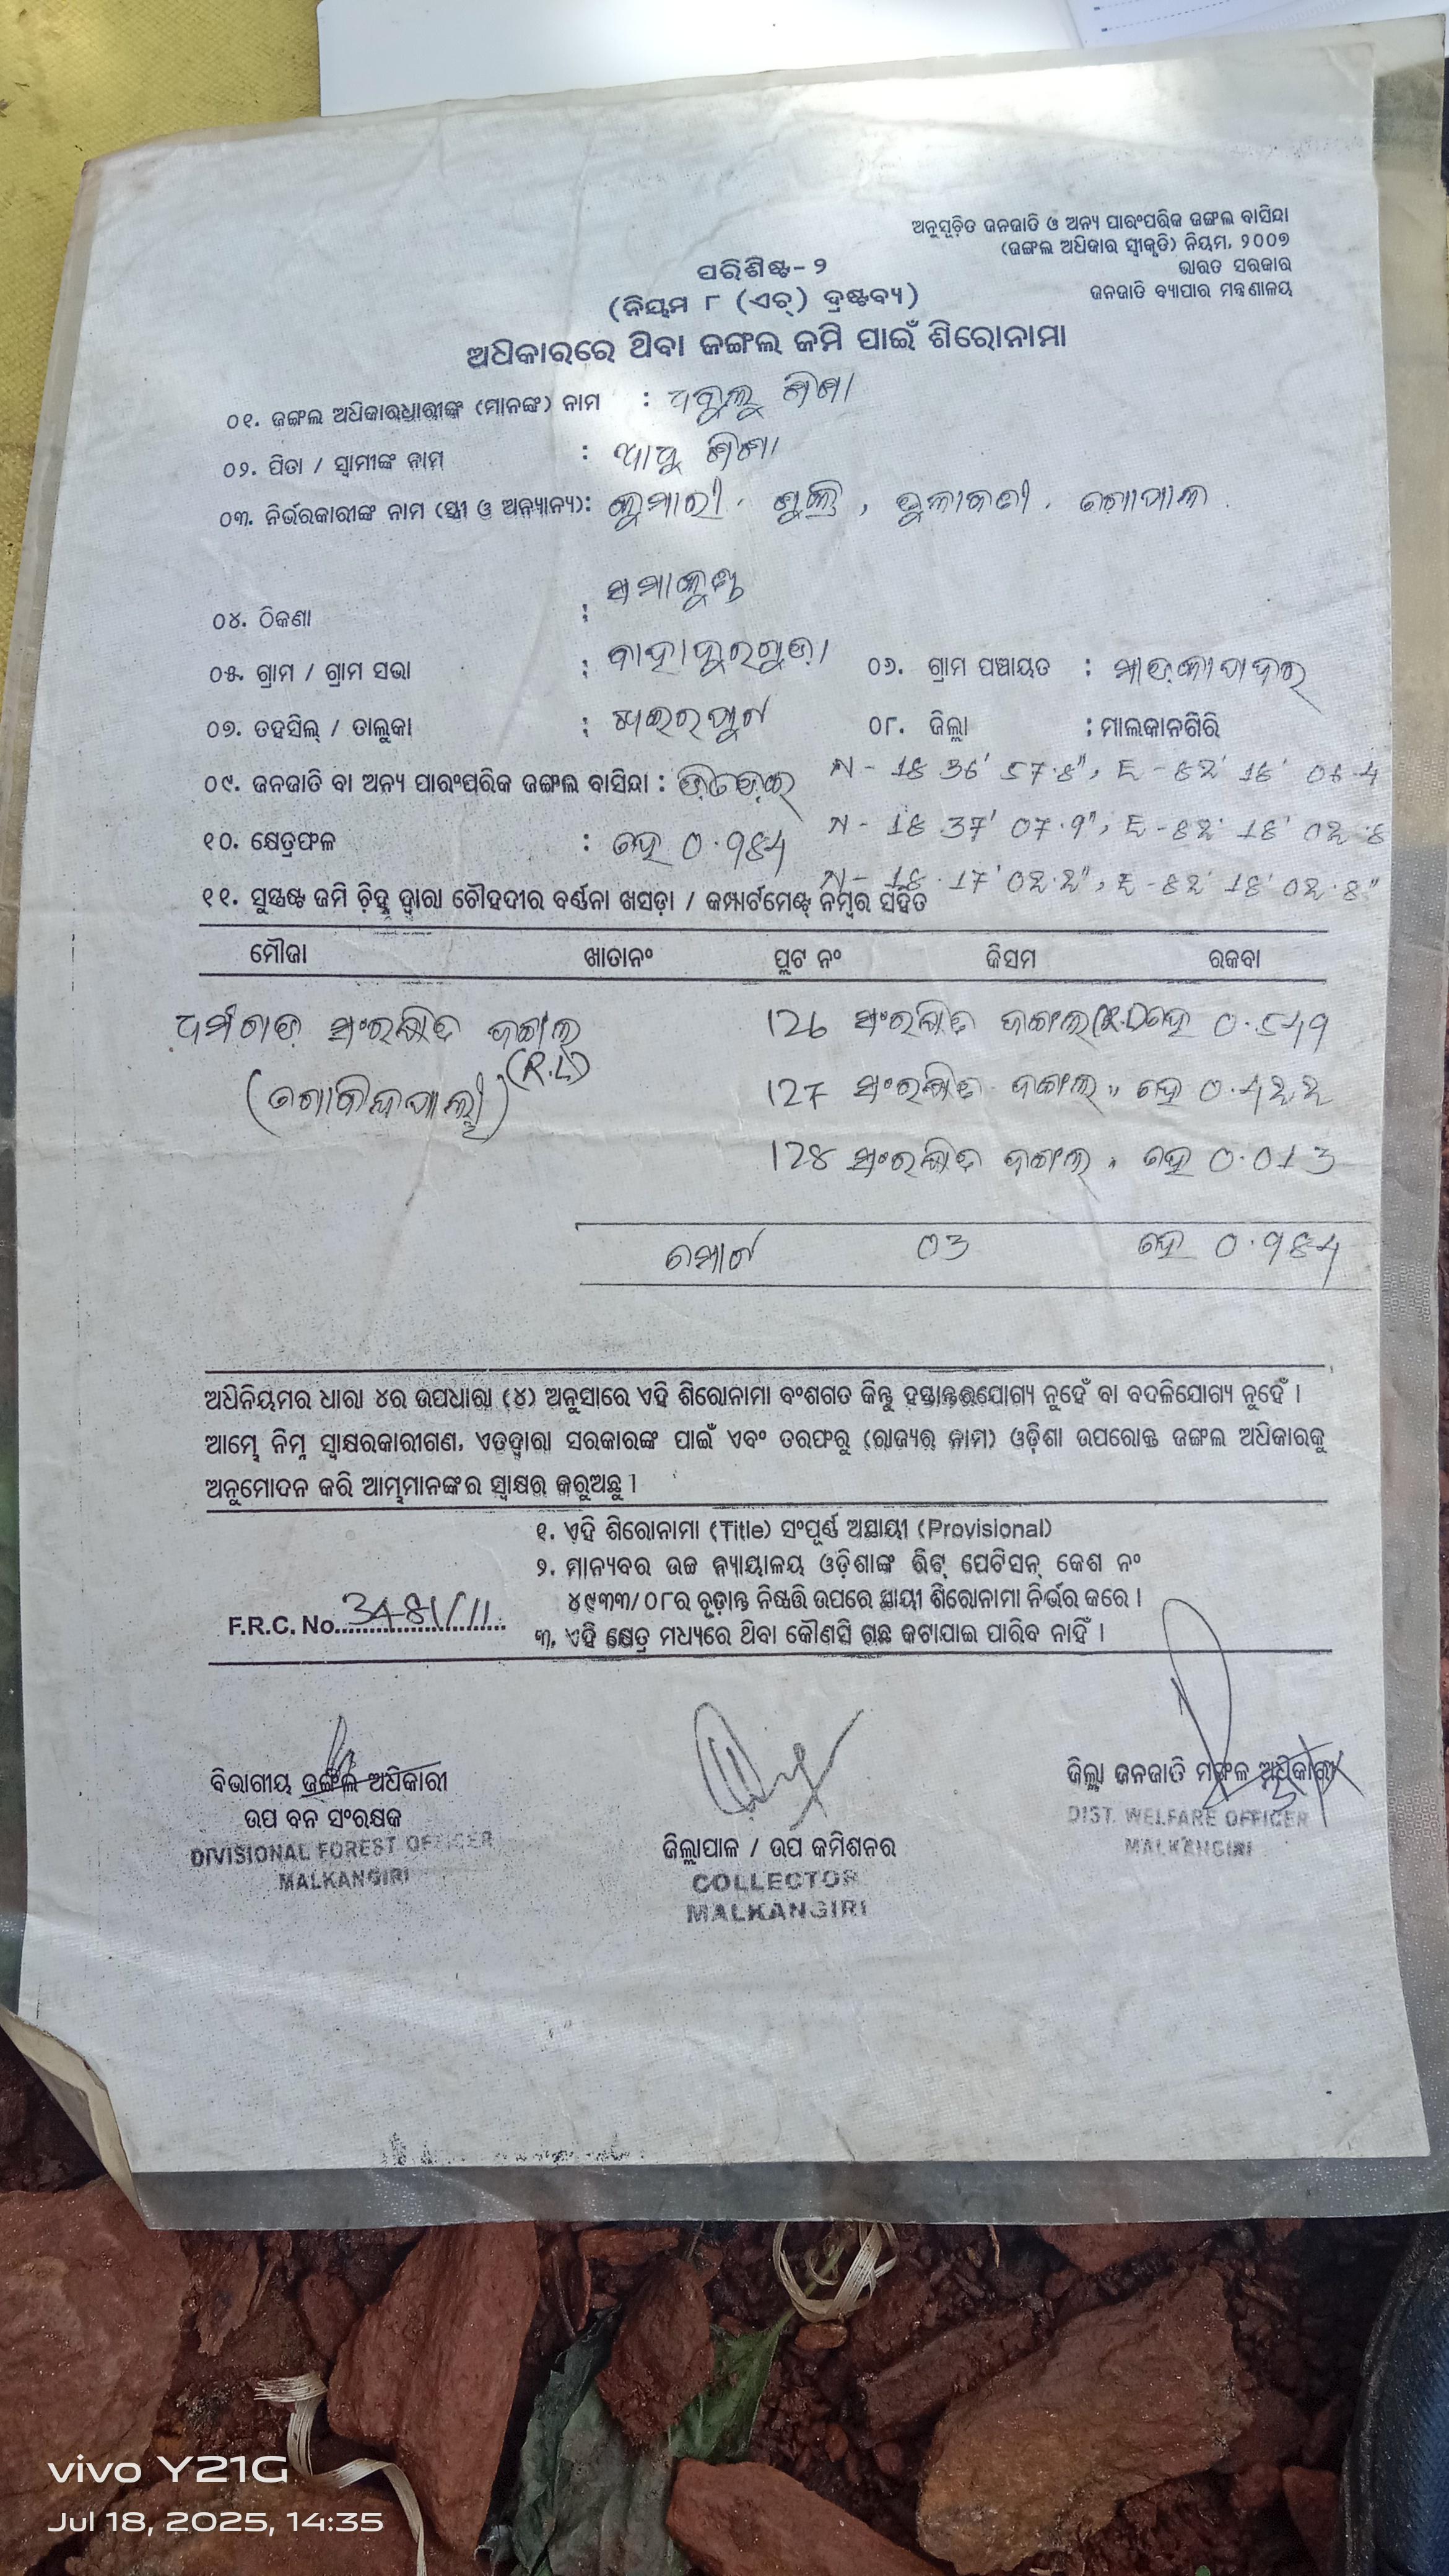 ଅନୁସୂଚିତ ଜନଜାତି ଓ ଅନ୍ୟ ପାରଂପରିକ ଜଙ୍ଗଲ ବାସିନ୍ଦା
(ଜଙ୍ଗଲ ଅଧିକାର ସ୍ୱୀକୃତି) ନିୟମ, ୨୦୦୭
ଭାରତ ସରକାର
ଜନଜାତି ବ୍ୟାପାର ମନ୍ତ୍ରଣାଳୟ
ପରିଶିଷ୍ଟ-୨
(ନିୟମ ୮ (ଏଚ୍) ଦ୍ରଷ୍ଟବ୍ୟ)
ଅଧିକାରରେ ଥିବା ଜଙ୍ଗଲ ଜମି ପାଇଁ ଶିରୋନାମା
୦୧. ଜଙ୍ଗଲ ଅଧିକାରଧାରୀଙ୍କ (ମାନଙ୍କ) ନାମ :
୦୨. ପିତା / ସ୍ୱାମୀଙ୍କ ନାମ :
୦୩. ନିର୍ଭରକାରୀଙ୍କ ନାମ (ସ୍ତ୍ରୀ ଓ ଅନ୍ୟାନ୍ୟ): କୁମାରୀ,
୦୪. ଠିକଣା :
୦୫. ଗ୍ରାମ / ଗ୍ରାମ ସଭା : ବାହାଦୁରଗୁଡ଼ା ୦୬. ଗ୍ରାମ ପଞ୍ଚାୟତ :
୦୭. ତହସିଲ୍ / ତାଲୁକା : ଖଇରପୁଟ ୦୮. ଜିଲ୍ଲା : ମାଲକାନଗିରି
୦୯. ଜନଜାତି ବା ଅନ୍ୟ ପାରଂପରିକ ଜଙ୍ଗଲ ବାସିନ୍ଦା : N - 18 36' 57.8", E - 82' 18' 06.4
୧୦. କ୍ଷେତ୍ରଫଳ : ହେ 0.984 N - 18 37' 07.9", E - 82' 18' 02.8
N - 18. 17' 02.2", E - 82' 18' 02.8"
୧୧. ସୁସ୍ପଷ୍ଟ ଜମି ଚିହ୍ନ ଦ୍ୱାରା ଚୌହଦୀର ବର୍ଣ୍ଣନା ଖସଡ଼ା / କମ୍ପାର୍ଟମେଣ୍ଟ ନମ୍ବର ସହିତ
ମୌଜା ଖାତାନଂ ପ୍ଲଟ ନଂ କିସମ ରକବା
ସଂରକ୍ଷିତ ଜଙ୍ଗଲ 126 ସଂରକ୍ଷିତ ଜଙ୍ଗଲ ହେ 0.549
(ଗୋବିନ୍ଦପାଲ୍ଲୀ) 127 ସଂରକ୍ଷିତ ଜଙ୍ଗଲ " ହେ 0.422
128 ସଂରକ୍ଷିତ ଜଙ୍ଗଲ " ହେ 0.013
ମୋଟ 03 ହେ 0.984
ଅଧିନିୟମର ଧାରା ୪ର ଉପଧାରା (୪) ଅନୁସାରେ ଏହି ଶିରୋନାମା ବଂଶଗତ କିନ୍ତୁ ହସ୍ତାନ୍ତରଯୋଗ୍ୟ ନୁହେଁ ବା ବଦଳିଯୋଗ୍ୟ ନୁହେଁ ।
ଆମ୍ଭେ ନିମ୍ନ ସ୍ୱାକ୍ଷରକାରୀଗଣ, ଏତଦ୍ୱାରା ସରକାରଙ୍କ ପାଇଁ ଏବଂ ତରଫରୁ (ରାଜ୍ୟର ନାମ) ଓଡ଼ିଶା ଉପରୋକ୍ତ ଜଙ୍ଗଲ ଅଧିକାରକୁ
ଅନୁମୋଦନ କରି ଆମ୍ଭମାନଙ୍କର ସ୍ୱାକ୍ଷର କରୁଅଛୁ ।
୧. ଏହି ଶିରୋନାମା (Title) ସଂପୂର୍ଣ୍ଣ ଅସ୍ଥାୟୀ (Provisional)
୨. ମାନ୍ୟବର ଉଚ୍ଚ ନ୍ୟାୟାଳୟ ଓଡ଼ିଶାଙ୍କ ରିଟ୍ ପେଟିସନ୍ କେଶ ନଂ
୪୯୩୩/୦୮ର ଚୂଡ଼ାନ୍ତ ନିଷ୍ପତ୍ତି ଉପରେ ସ୍ଥାୟୀ ଶିରୋନାମା ନିର୍ଭର କରେ ।
F.R.C. No. 3481/11
୩. ଏହି କ୍ଷେତ୍ର ମଧ୍ୟରେ ଥିବା କୌଣସି ଗଛ କଟାଯାଇ ପାରିବ ନାହିଁ ।
ବିଭାଗୀୟ ଜଙ୍ଗଲ ଅଧିକାରୀ
ଉପ ବନ ସଂରକ୍ଷକ
DIVISIONAL FOREST OFFICER
MALKANGIRI
ଜିଲ୍ଲାପାଳ / ଉପ କମିଶନର
COLLECTOR
MALKANGIRI
ଜିଲ୍ଲା ଜନଜାତି ମଙ୍ଗଳ ଅଧିକାରୀ
DIST. WELFARE OFFICER
MALKANGIRI
vivo Y21G
Jul 18, 2025, 14:35